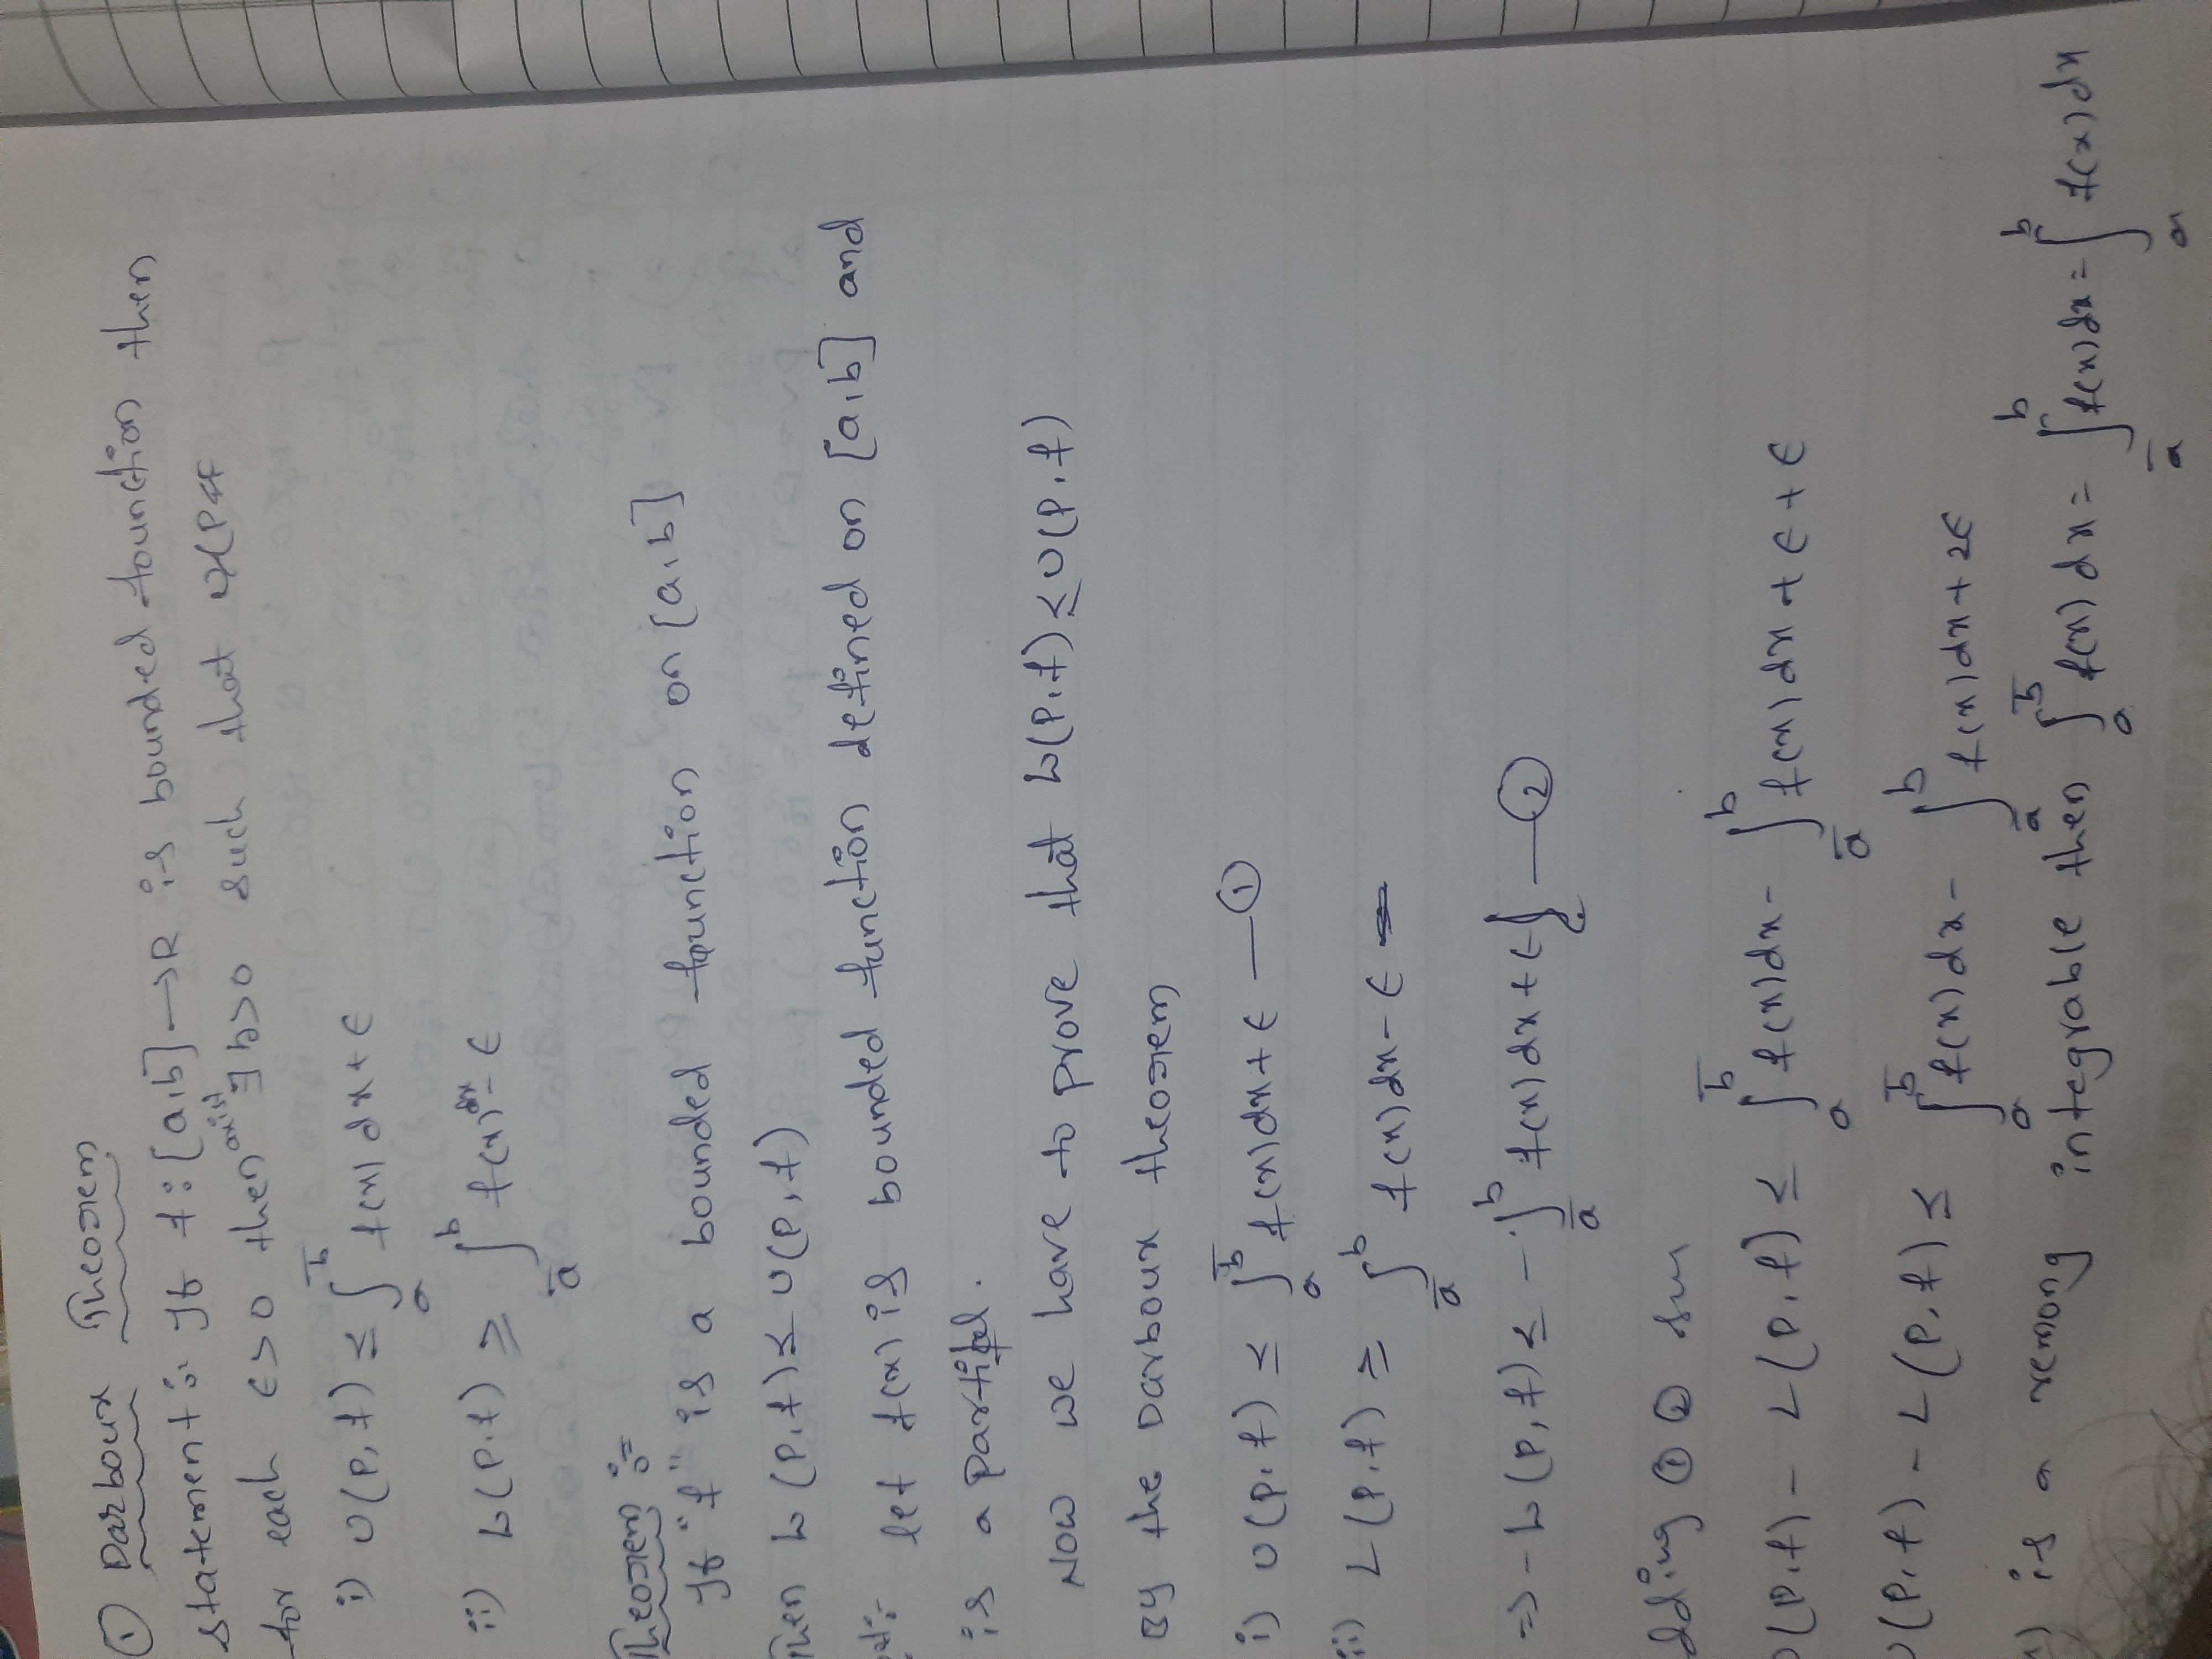 ① Darboux Theorem
statement :- If f : [a,b] → R is bounded founction then
for each ϵ > 0 then axist ∃ δ > 0 such that
i) U(P, f) ≤ ∫_a^b̅ f(x) dx + ϵ
ii) L(P, f) ≥ ∫_a̅^b f(x) dx - ϵ
Theorem :=
If "f" is a bounded function on [a,b]
Then L(P, f) ≤ U(P, f)
let f(x) is bounded function defined on [a,b] and
is a
Now we have to prove that L(P, f) ≤ U(P, f)
By the Darboux theorem
i) U(P, f) ≤ ∫_a^b̅ f(x) dx + ϵ — ①
ii) L(P, f) ≥ ∫_a̅^b f(x) dx - ϵ
⇒ - L(P, f) ≤ - ∫_a̅^b f(x) dx + ϵ } — ②
dding ① ②
U(P, f) - L(P, f) ≤ ∫_a^b̅ f(x) dx - ∫_a̅^b f(x) dx + ϵ + ϵ
U(P, f) - L(P, f) ≤ ∫_a^b̅ f(x) dx - ∫_a̅^b f(x) dx + 2ϵ
) is a remong integrable then ∫_a^b̅ f(x) dx = ∫_a̅^b f(x) dx = ∫_a^b f(x) dx